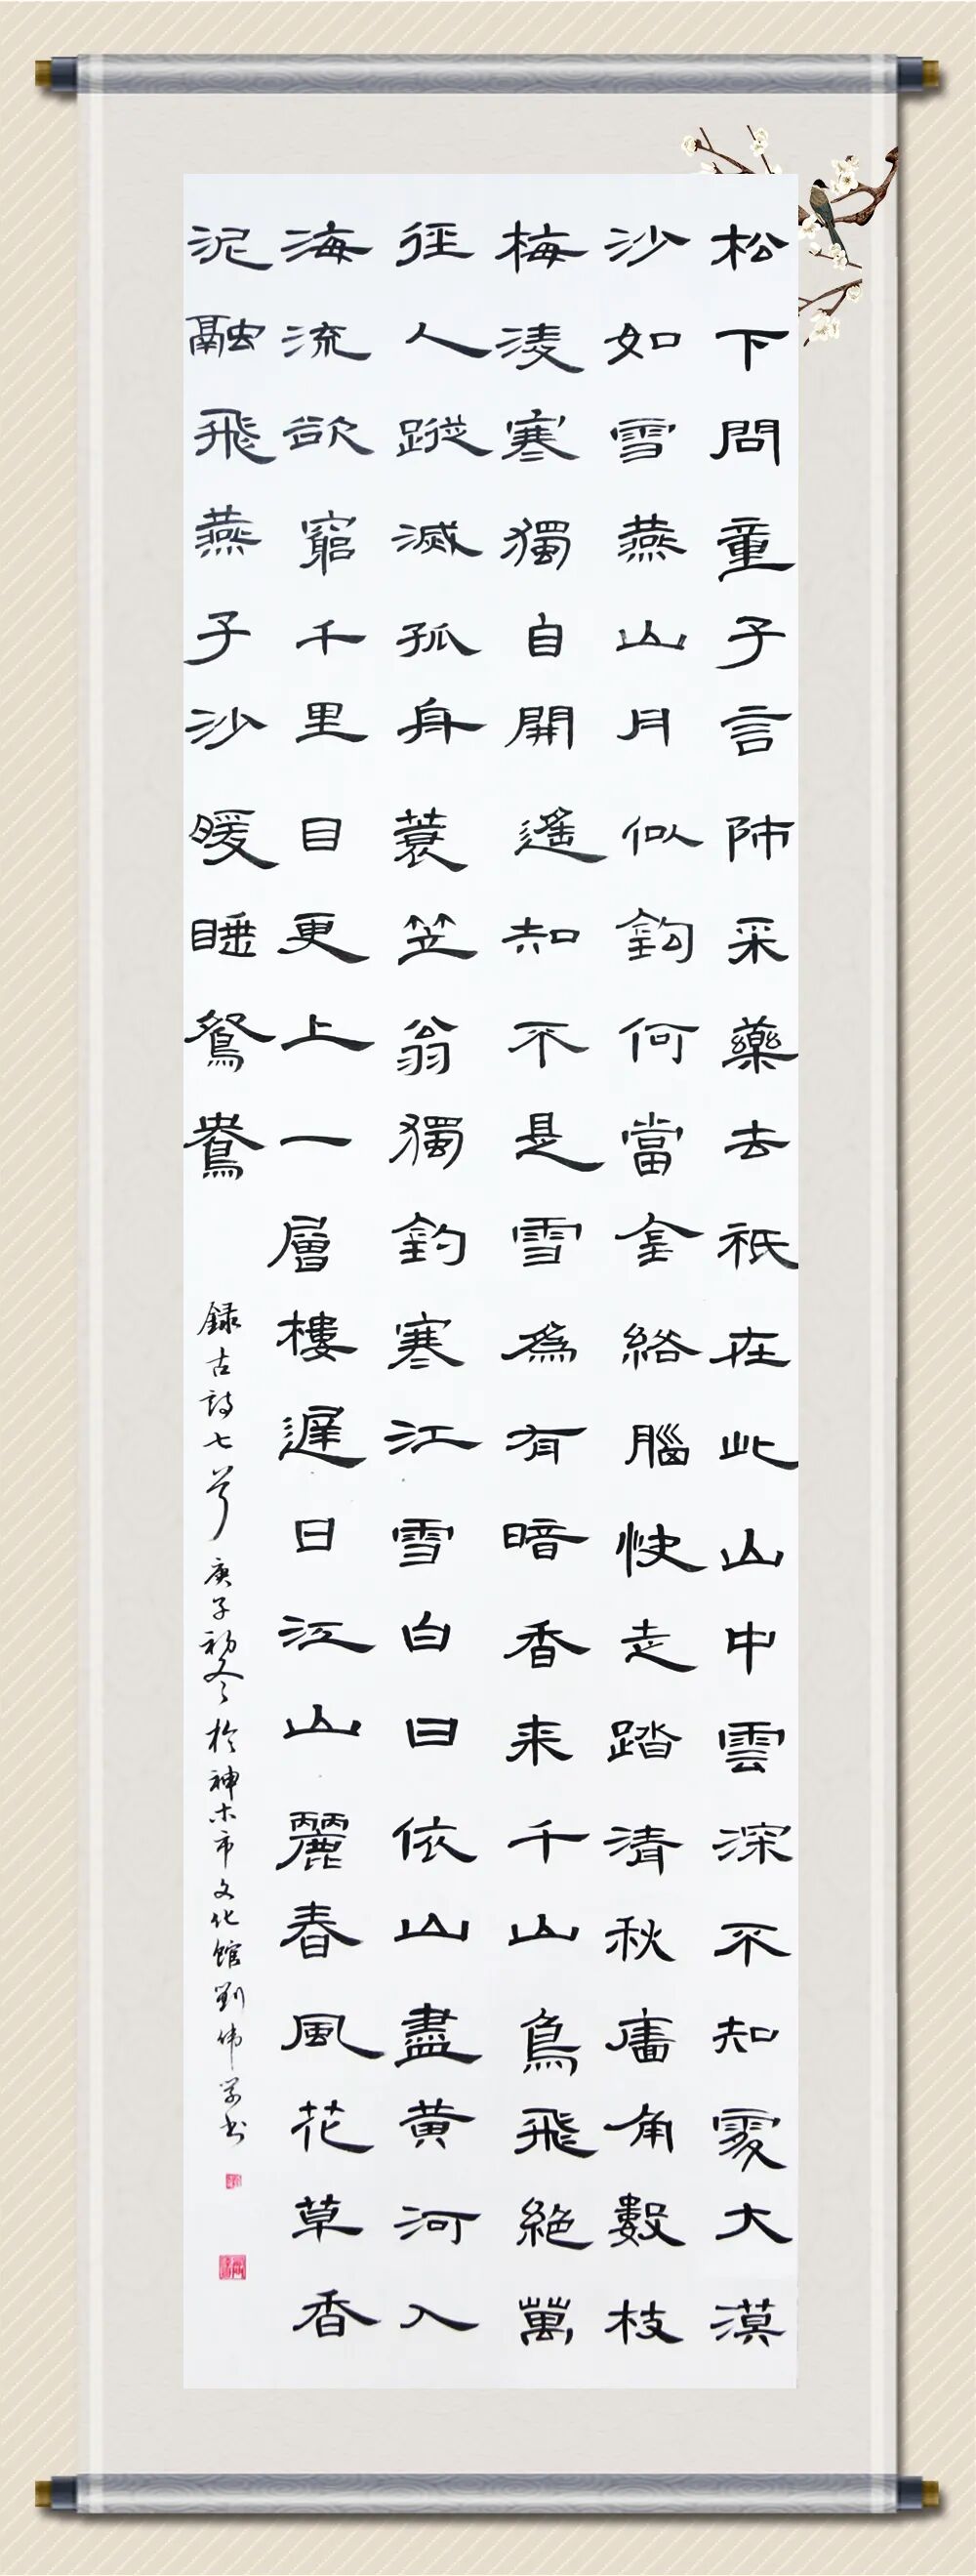 松下問童子言師采藥去祇在此山中雲深不知處大漠
沙如雪燕山月似鈎何當金絡腦快走踏清秋牆角數枝
梅凌寒獨自開遙知不是雪為有暗香来千山鳥飛絕萬
徑人蹤滅孤舟蓑笠翁獨釣寒江雪白日依山盡黄河入
海流欲窮千里目更上一層樓遲日江山麗春風花草香
泥融飛燕子沙暖睡鴛鴦
録古詩七首庚子初冬於神木市文化館劉偉